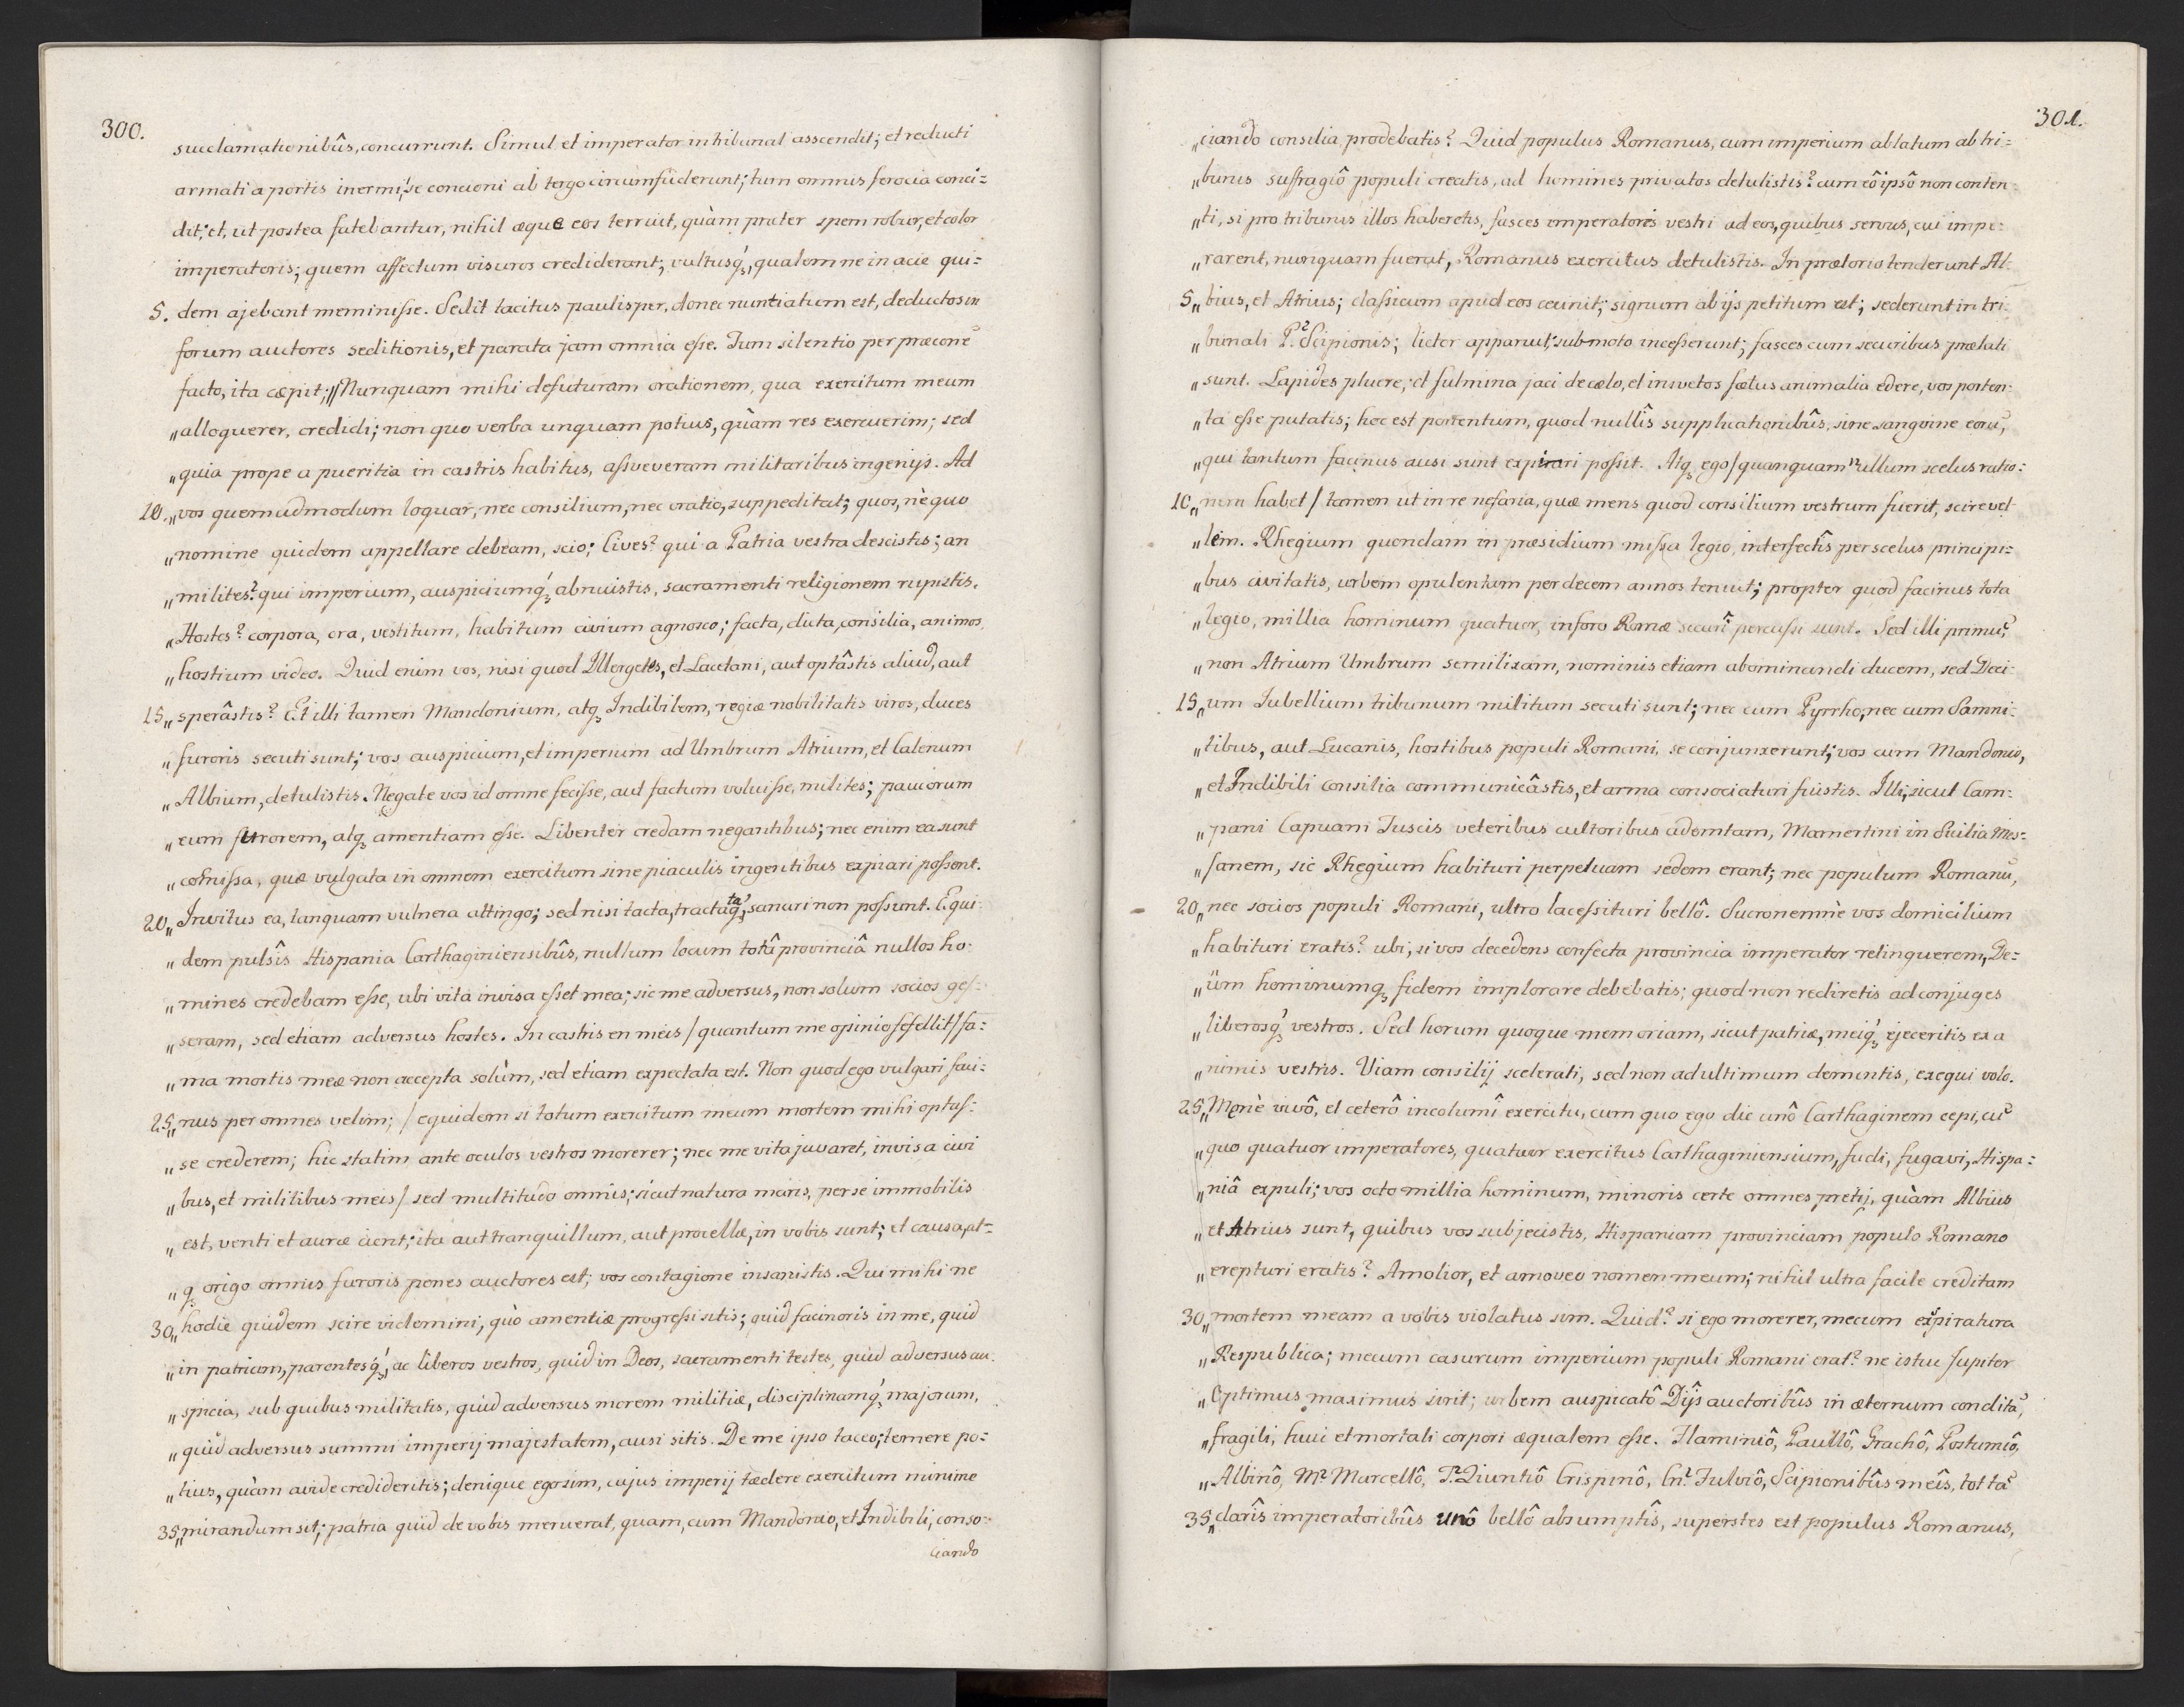 300.
succlamationibûs, concurrunt. Simul et imperator in tribunal asscendit; et reducti
armati a portis inermi, se concioni ab tergo circumfuderunt; tum omnis ferocia conci=
dit; et, ut postea fatebantur, nihil æque eos terruit, quàm præter spem robur, et color
imperatoris; quem affectum visuros crediderant; vultusq́ʒ, qualem ne in acie qui=
5. dem ajebant meminisse. Sedit tacitus paulisper, donec nuntiatum est, deductos in
forum auctores seditionis, et parata jam omnia esse. Tum silentio per præcone͂
facto, ita cæpit; // Nunquam mihi defuturam orationem, qua exercitum meum
„alloquerer, credidi; non quo verba unquam potius, quàm res exercuerim; sed
„quia prope a pueritia in castris habitus, assveveram militaribus ingenijs. Ad
10. „vos quemadmodum loquar, nec consilium, nec oratio, suppeditat; quos, nè quo
„nomine quidem appellare debeam, scio; Cives? qui a Patria vestra descistis; an
„milites? qui imperium, auspiciumq́ʒ abnuistis, sacramenti religionem rupistis.
„Hostes? corpora, ora, vestitum, habitum civium agnosco; facta, dicta, consilia, animos,
„hostium video. Quid enim vos, nisi quod Illergetes, et Lacetani, aut optâstis aliud, aut
15 „sperâstis? Et illi tamen Mandonium, atqʒ Indibilem, regiæ nobilitatis viros, duces
„furoris secuti sunt; vos auspicium, et imperium ad Umbrum Atrium, et Calenum
„Albium, detulistis. Negate vos id omne fecisse, aut factum voluisse, milites; paucorum
„eum furorem, atqʒ amentiam esse. Libenter credam negantibus; nec enim ea sunt
„com͂issa, quæ vulgata in omnem exercitum sine piaculis ingentibus expiari possent.
20 „Invitus ea, tanquam vulnera attingo; sed nisi tacta, tractataq́ʒ, sanari non possunt. Equi-
„dem pulsîs Hispania Carthaginiensibûs, nullum locum totâ provinciâ nullos ho-
„mines credebam esse, ubi vita invisa esset mea; sic me adversus, non solum socios ges-
„seram, sed etiam adversus hostes. In castris en meis / quantum me opinio fefellit / fa=
„ma mortis meæ non accepta solùm, sed etiam expectata est. Non quod ego vulgari faci=
25 „nus per omnes velim; / equidem si totum exercitum meum mortem mihi optas=
„se crederem; hic statim ante oculos vestros morerer; nec me vita juvaret, invisa civi
„bus, et militibus meis / sed multitudo omnis; sicut natura maris, per se immobilis
„est, venti et auræ cient; ita aut tranquillum, aut procellæ, in vobis sunt; et causa, at=
„qʒ origo omnis furoris penes auctores est; vos contagione insanistis. Qui mihi ne
30 „hodie quidem scire videmini, quò amentiæ progressi sitis; quid facinoris in me, quid
„in patriam, parentesq́ʒ, ac liberos vestros, quid in Deos, sacramenti testes, quid adversus au-
„spicia, sub quibus militatis, quid adversus morem militiæ, disciplinamq́ʒ majorum,
„quid adversus summi imperij majestatem, ausi sitis. De me ipso taceo; temere po=
„tius, quàm avide credideritis; denique ego sim, cujus imperij tædere exercitum minime
35 „mirandum sit; patria quid de vobis meruerat, quam, cum Mandonio, et Indibili, conso=
ciando
301.
„ciando consilia prodebatis? Quid populus Romanus, cum imperium ablatum ab tri=
„bunis suffragiô populi creatis, ad homines privatos detulistis? cum eô ipsô non conten-
„ti, si pro tribunis illos haberetis, fasces imperatoris vestri ad eos, quibus servus, cui impe=
„rarent, nunquam fuerat, Romanus exercitus detulistis. In prætorio tenderunt Al-
5 „bius, et Atrius; classicum apud eos cecinit; signum ab ijs petitum est; sederunt in tri-
„bunali P. Scipionis; lictor apparuit; submoto incesserunt; fasces cum securibus prælati
„sunt. Lapides pluere, et fulmina jaci de cælo, et insvetos fœtus animalia edere, vos porten-
„ta esse putatis; hoc est portentum, quod nullîs supplicationibûs, sine sangvine eoru͂,
„qui tantum facinus ausi sunt expirari possit. Atqʒ ego / quanquam nullum scelus ratio=
10 „nem habet / tamen ut in re nefaria, quæ mens quod consilium vestrum fuerit, scire vel-
„lem. Rhegium quondam in præsidium missa legio, interfectîs per scelus principi=
„bus civitatis, urbem opulentam per decem annos tenuit; propter quod facinus tota
„legio, millia hominum quatuor, in foro Romæ securî percussi sunt. Sed illi primu͂,
„non Atrium Umbrum semilixam, nominis etiam abominandi ducem, sed Deci-
15 „um Jubellium tribunum militum secuti sunt; nec cum Pyrrho, nec cum Samni-
„tibus, aut Lucanis, hostibus populi Romani, se conjunxerunt; vos cum Mandonio,
„et Indibili consilia communicâstis, et arma consociaturi fuistis. Illi, sicut Cam-
„pani Capuam Tuscis veteribus cultoribus ademtam, Mamertini in Sicilia Mes=
„sanem, sic Rhegium habituri perpetuam sedem erant; nec populum Romanu͂,
20 „nec socios populi Romani, ultro lacessituri bellô. Sucronemnè vos domicilium
„habituri eratis? ubi, si vos decedens confecta provincia imperator relinquerem, De=
„üm hominumqʒ fidem implorare debebatis; quod non rediretis ad conjuges
„liberosq́ʒ vestros. Sed horum quoque memoriam, sicut patriæ, meiq́ʒ ejeceritis ex a
„nimis vestris. Viam consilij scelerati, sed non ad ultimum dementis, exequi volo.
25 „Menè vivô, et ceterô incolumî exercitu, cum quo ego die unô Carthaginem cepi, cu͂
„quo quatuor imperatores, quatuor exercitus Carthaginiensium, fudi, fugavi, Hispa=
„niâ expuli; vos octo millia hominum, minoris certe omnes pretij, quàm Albius
„et Atrius sunt, quibus vos subjecistis, Hispaniam provinciam populo Romano
„erepturi eratis? Amolior, et amoveo nomen meum; nihil ultra facile creditam
30 „mortem meam a vobis violatus sim. Quid? si ego morerer, mecum expiratura
„Respublica; mecum casurum imperium populi Romani erat? ne istuc Jupiter
„Optimus maximus sirit; urbem auspicatô Dijs auctoribûs in æternum condita͂,
„fragili, huic et mortali corpori æqualem esse. Flaminiô, Paullô, Grachô, Postumiô,
„Albinô, M. Marcellô, T. Quintiô Crispinô, Cn. Fulviô, Scipionibûs meîs, tot ta͂
35 „clarîs imperatoribûs unô bellô absumptîs, superstes est populus Romanus,